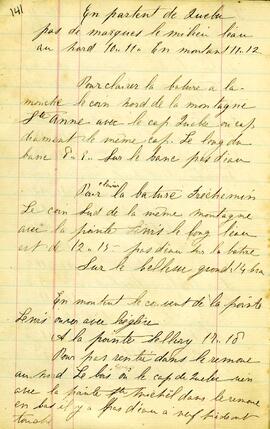 141
En partent de Quebe
pas de marques le milieu l'eau
au nord 10.11. En montant 11.12
Pour clairer la bature a la
mouche le coin nord de la montagne
Ste Anne avec le cap
le même cap. Le long du
banc 8.9. Sur le banc pas d'eau
Pour clairer la bature
Le coin Sud de la même montagne
avec la pointe Levis le long l'eau
est de 12.15 - pas d'eau sur la batre
Sur le
En montent le couvent de la pointe
Levis ouver avec l'eglise
A la pointe 17.18
Pour pas rentré dans le remoue
au nord Le bois ou le cap de Quebe un
avec la pointe St Michel dans le remoue
en bas il y a pas d'eau a neuf